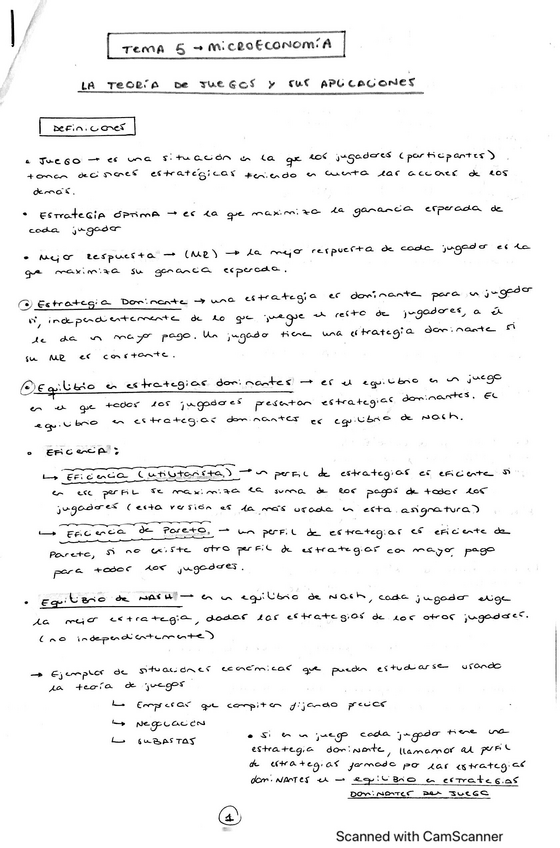 TEMA 5 → MICROECONOMÍA
LA TEORÍA DE JUEGOS Y SUS APLICACIONES
DEFINICIONES
• JUEGO → es una situación en la que los jugadores (participantes)
toman decisiones estratégicas teniendo en cuenta las acciones de los
demás.
• ESTRATEGIA ÓPTIMA → es la que maximiza la ganancia esperada de
cada jugador
• Mejor Respuesta → (MR) → la mejor respuesta de cada jugador es la
que maximiza su ganancia esperada.
• Estrategia Dominante → una estrategia es dominante para un jugador
si, independientemente de lo que juegue el resto de jugadores, a él
le da un mayor pago. Un jugador tiene una estrategia dominante si
su MR es constante.
• Equilibrio en estrategias dominantes → es el equilibrio en un juego
en el que todos los jugadores presentan estrategias dominantes. El
equilibrio en estrategias dominantes es equilibrio de Nash.
• EFICIENCIA:
↳ Eficiencia (utilitarista) → un perfil de estrategias es eficiente si
en ese perfil se maximiza la suma de los pagos de todos los
jugadores (esta versión es la más usada en esta asignatura)
↳ Eficiencia de Pareto. → un perfil de estrategias es eficiente de
Pareto, si no existe otro perfil de estrategias con mayor pago
para todos los jugadores.
• Equilibrio de NASH → en un equilibrio de Nash, cada jugador elige
la mejor estrategia, dadas las estrategias de los otros jugadores.
(no independientemente)
→ Ejemplos de situaciones económicas que pueden estudiarse usando
la teoría de juegos
↳ Empresas que compiten fijando precios
↳ NEGOCIACIÓN
↳ SUBASTAS
• Si en un juego cada jugador tiene una
estrategia dominante, llamamos al perfil
de estrategias formado por las estrategias
dominantes el → equilibrio en estrategias
DOMINANTES DEL JUEGO
1
Scanned with CamScanner